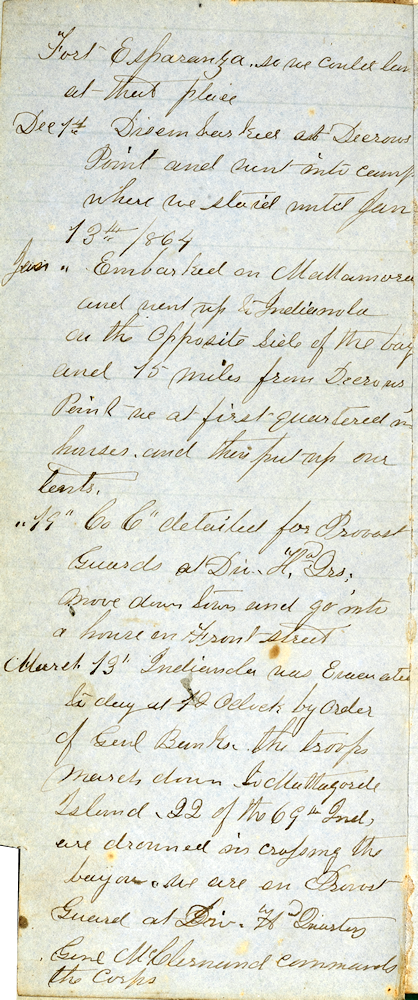 "Fort Esparanza. so we could lan
at that place
Dec 1st Disembarked at Decrows
Point and went into camp
where we staid until Jan
13th 1864
Jan " Embarked on Mattamora
and went up to Indianola
on the Opposite Side of the bay
and 15 miles from Decrows
Point we at first quartered in
houses. and then put up our
tents.
" 19" Co C" detailed for Provost
Guards at Div. "Hd Qrs,
move down town and go into
a house on Front street
March 13" Indianola was Evacuated
to day at Oclock by Order
of Genl Banks. the troops
march down to Mattagorda
Island. 22 of the 69th Ind,
are drowned in crossing the
bayou. we are on Provost
Guard at Div. "Hd Quarters
Genl McClernand commands
the Corps